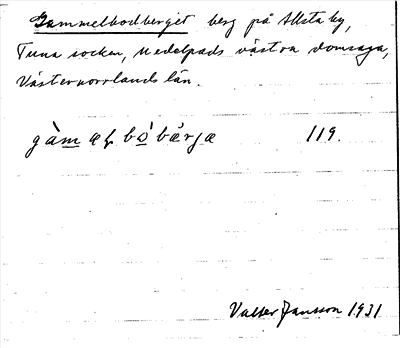 Gammelbodberget berg på Allsta by,
Tuna socken, Medelpads västra domsaga,
Västernorrlands län.
gàmæḷbòbæ̀rja 119.
Valter Jansson 1931